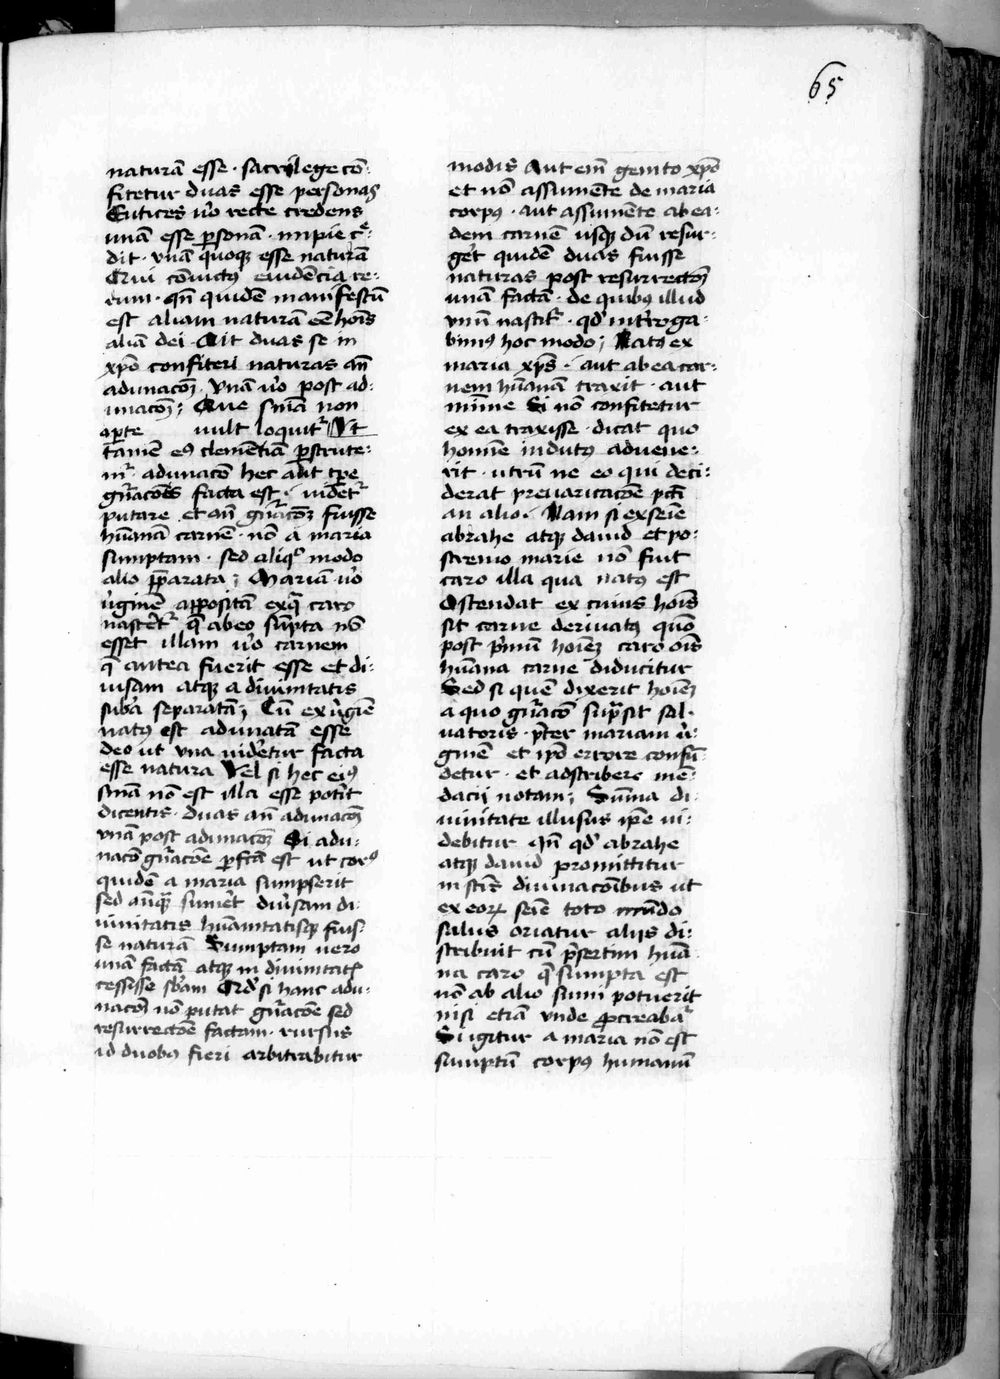 65
naturā esse · sacrilege cō-
fitetur duas esse personas
Eutices ūo recte credens
unā esse ꝑsonā · impie cͤ-
dit · vnā quoqꝫ esse naturā
Qui cōuictꝰ euidēcia re-
rum · qn̄ quidē manifestū
est aliam naturā eē hoīs
aliā dei · Ait duas se in
xp̄o confiteri naturas an̄
adunacōꝫ · vnā ūo post ad-
unacōꝫ ; Que sn̄iā non
aperte uult loquitᷣ Vt
tamē eꝰ clemētiā ꝑscrute-
mᷣ · adunacō hec aut tꝑe
gn̄acōis facta est · uidetᷣ
putare et an̄ gn̄acōꝫ fuisse
hūanā carnē · nō a maria
sumptam · sed aliqͦ modo
alio p̄parata ; Mariā ūo
ūginē appositā ex qᷓ caro
nasceretᷣ q̄ ab eo sūpta nō
esset illam ūo carnem
q̄ antea fuerit esse et di-
uisam atqꝫ a diuinitatis
suba separatā ; Cū ex ūgīe
natꝰ est adunatā esse
deo ut vna uideretur facta
esse natura Vel si hec eiꝰ
sn̄iā nō est illa esse poterit
dicentis · duas an̄ adunacōꝫ
vnā post adunacōꝫ Si adu-
nacō gn̄acōe ꝑfc̄a est ut corꝰ
quidē a maria sumpserit
sed anteqᷓ sumeret diūsam di-
uinitatis hūanitatisqꝫ fuis-
se naturā Sumptam uero
unā factā atqꝫ in diuinitatis
cessisse sb̄am Qd̓ si hanc adu-
nacōꝫ nō putat gn̄acōe sed
resurrectōe factam · rursus
id duobꝰ fieri arbitrabitur
modis Aut em̄ genito xp̄o
et nō assumēte de maria
corpꝰ · aut assumēte ab ea-
dem carnē usqꝫ dū resur-
geret quidē duas fuisse
naturas post resurrectōꝫ
unā factā · de quibꝰ illud
vnū nascitᷣ · qd̓ interroga-
bimꝰ hoc modo ; Natꝰ ex
maria xp̄s · aut ab ea car-
nem hūanā traxit · aut
minime Si nō confitetur
ex ea traxisse · dicat quo
homine indutꝰ aduene-
rit · utrū ne eo qui deci-
derat preuaricacōe pcti
an alio · Nam si ex seīe
abrahe atqꝫ dauid et po-
stremo marie nō fuit
caro illa qua natꝰ est
Ostendat ex cuius hoīs
sit carne deriuatꝰ quō
post p̄mū hoīeꝫ caro oīs
hūana carne diducitur
Sed si quē dixerit hoīeꝫ
a quo gn̄acō sūpta sit sal-
uatoris · p̄ter mariam ūi-
ginē et ip̄e errore confū-
detur · et adscribere mē-
dacii notam ; Sūma di-
uinitate illusus ip̄e ui-
debitur Qn̄ qd̓ abrahe
atqꝫ dauid promittitur
in sc̄is diuinacōibus ut
ex eoꝝ seīe toto mūdo
salus oriatur aliis di-
stribuit cū p̄sertim hūa-
na caro q̄ sumpta est
nō ab alio sumi potuerit
nisi etiā vnde ꝓcreabaᷣ
Si igitur a maria nō est
sumptū corpꝰ humanū